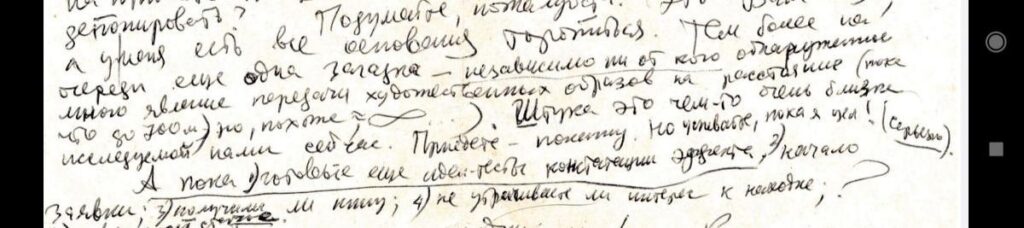 депонировать? Подумайте, пожалуйста.
а у меня есть все основания торопиться. Тем более на
очереди еще одна загадка – независимо ни от кого обнаруженное
мною явление передачи художественных образов на расстояние (пока
что до 700м) но, похоже ≈ ∞ ...). Штука это чем-то очень близка
исследуемой нами сейчас. Приедете – покажу. Но успевайте, пока я цел! (Серьезно).
А пока 1) готовьте еще идеи-тесты констатации эффекта, 2) начало
заявки; 3) получили ли книгу; 4) не утрачиваете ли интерес к находке; ?